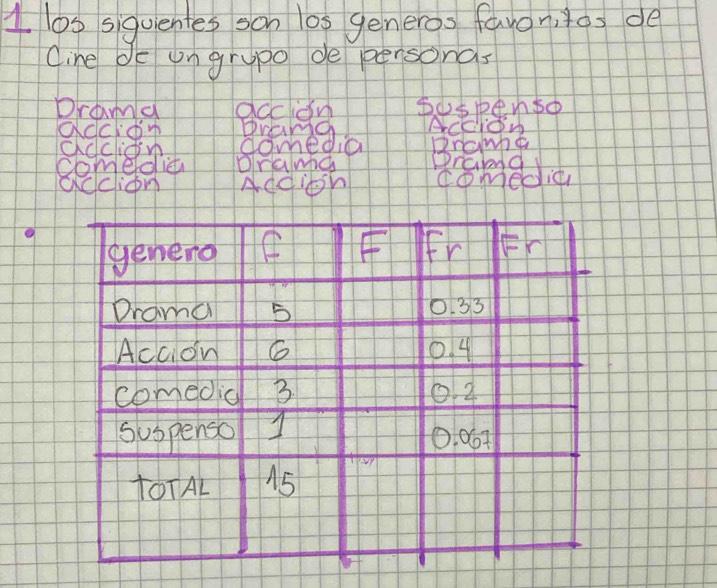 1. los siguientes son los generos favoritos de
Cine de un grupo de personas
Drama acción Suspenso
acción Drama Acción
acción comedia Drama
comedia Drama Drama
acción Acción comedia
genero f F fr Fr
Drama 5 0.33
Acción 6 0.4
comedia 3 0.2
suspenso 1 0.067
TOTAL 15